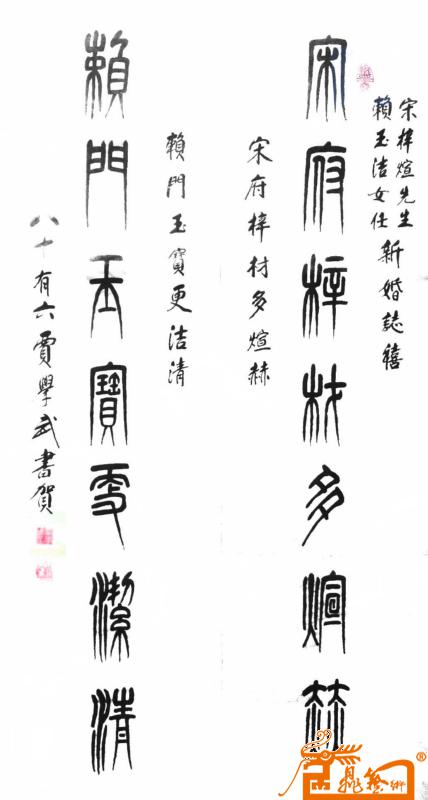 宋梓煊先生
賴玉洁女任
新婚誌禧
宋府梓材多煊赫
宋府梓材多煊赫
賴門玉寶更潔清
賴門玉寶更洁清
八十有六賈學武書賀